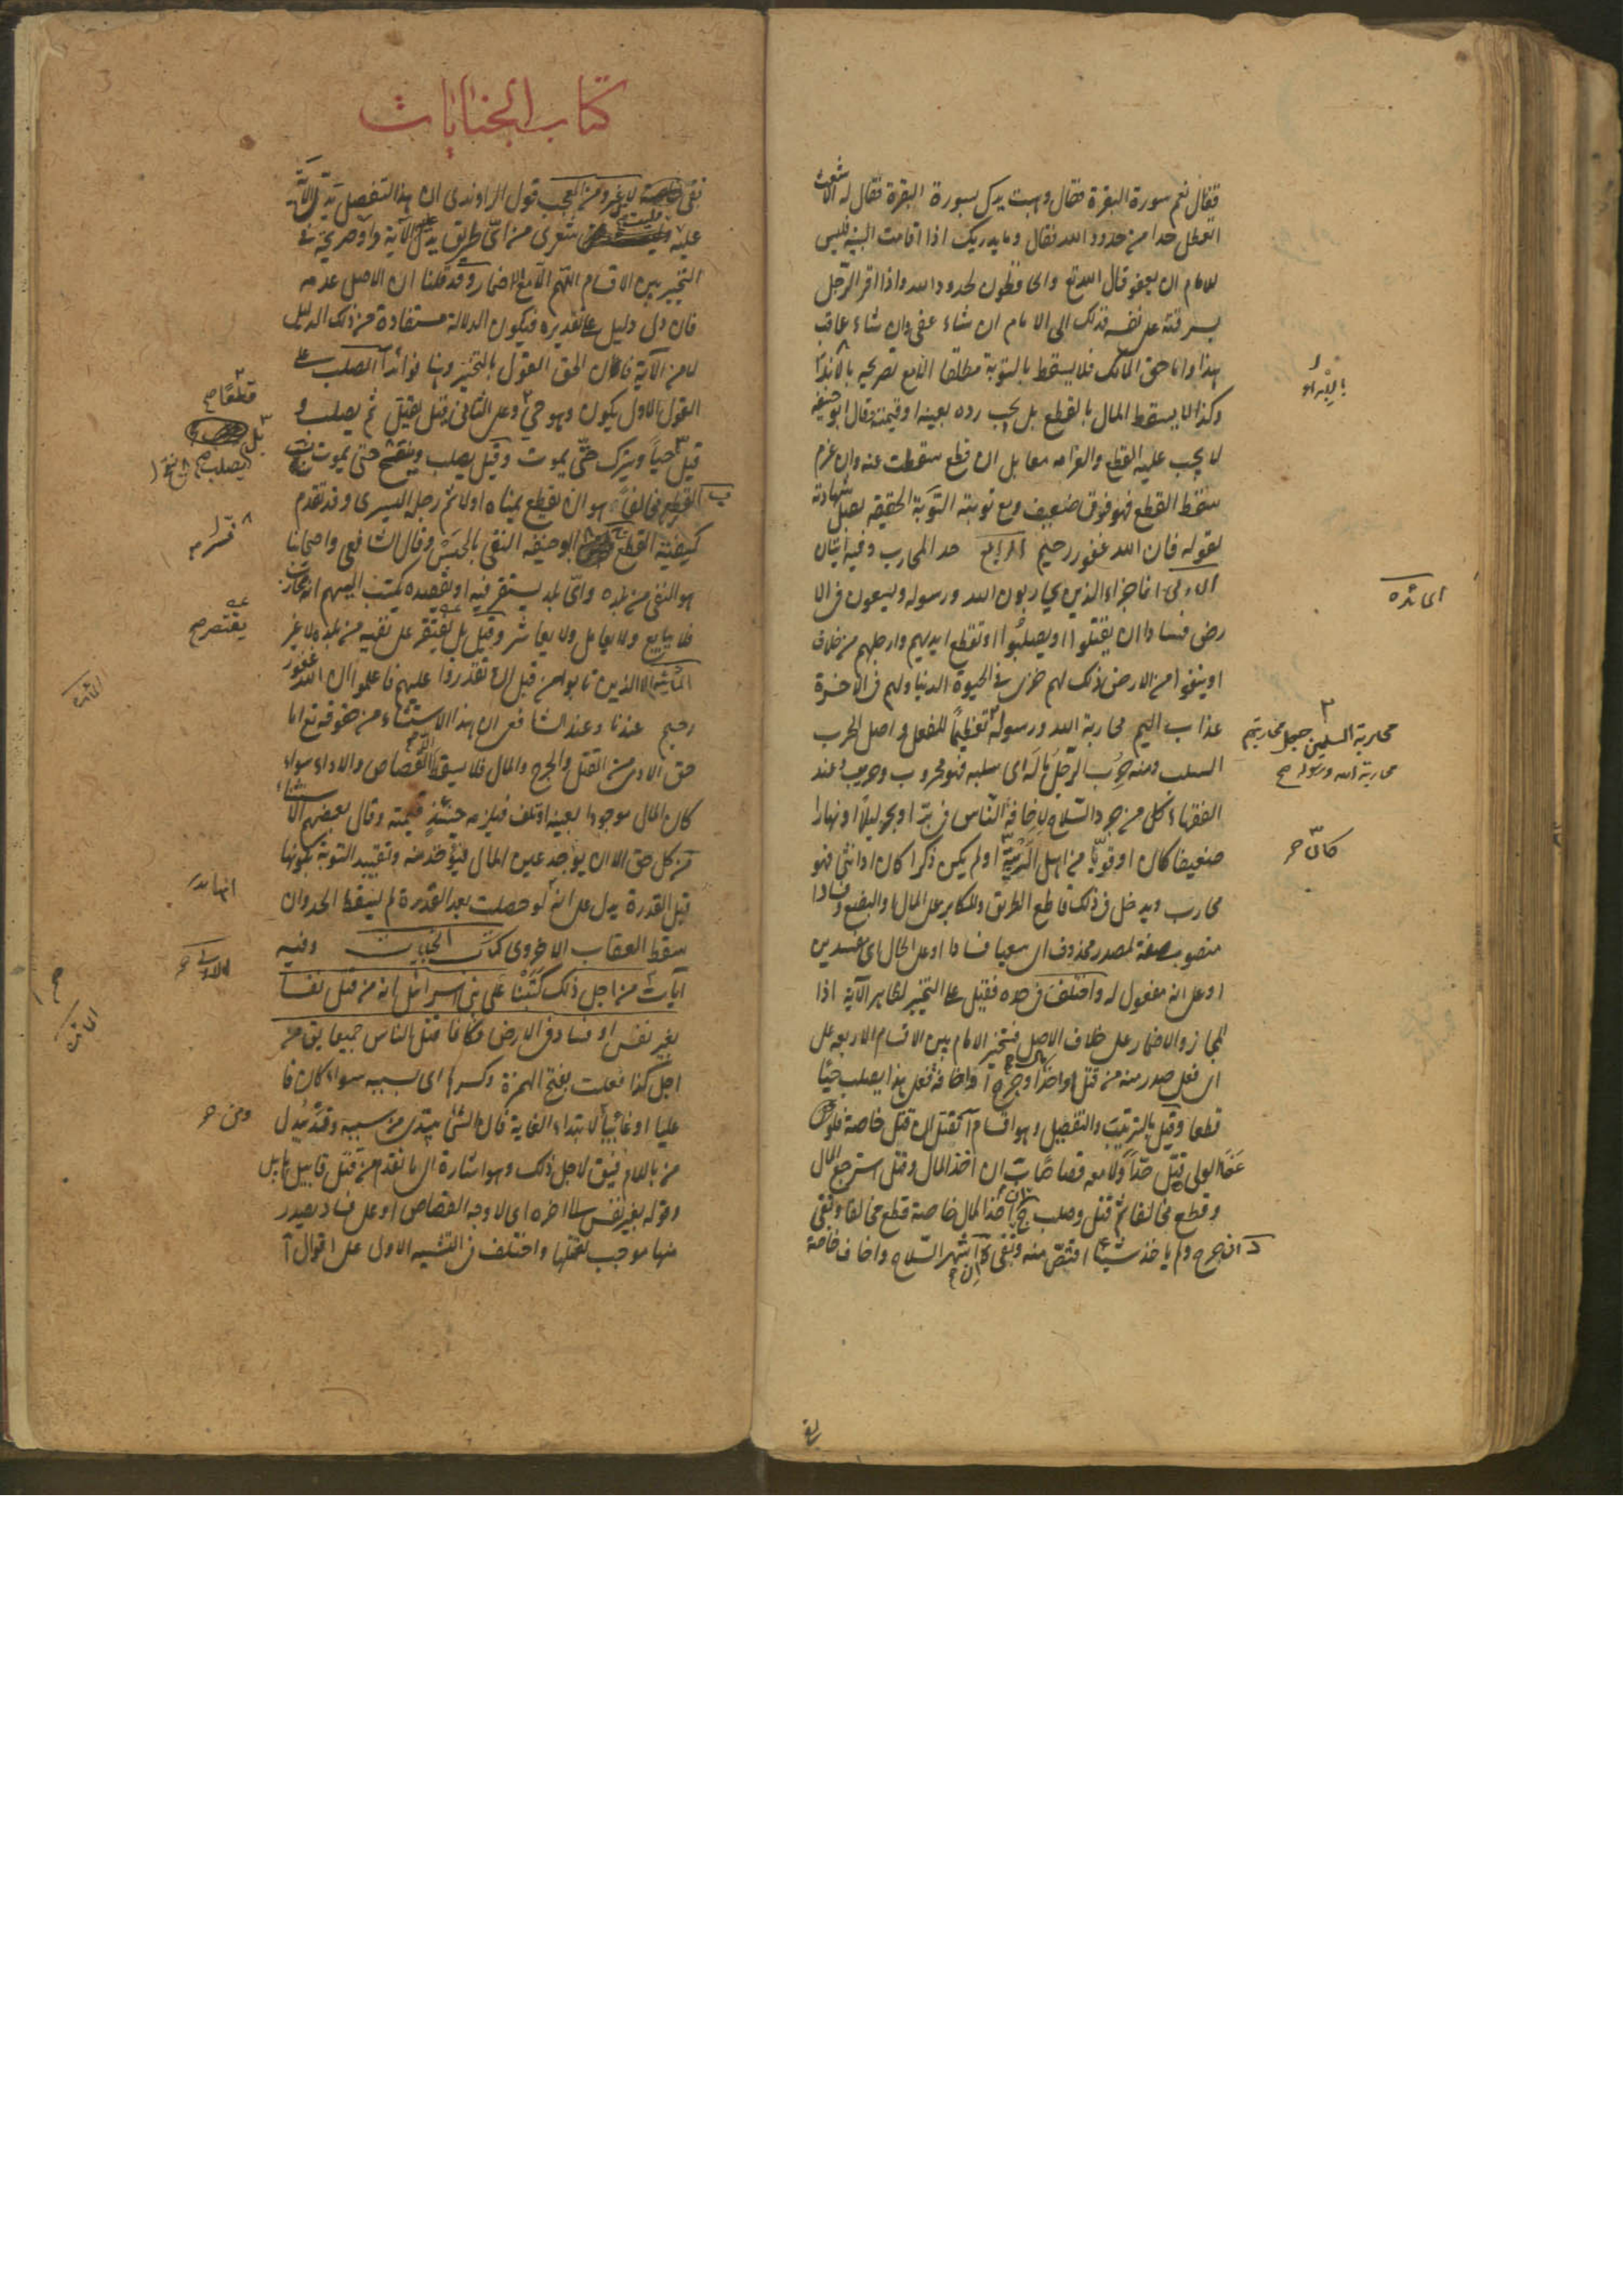 فقال نعم سورة البقرة فقال وهبت يدك بسورة البقرة فقال له الاشعث
اتعطل حدا من حدود الله فقال وما يدريك اذا اقامت البينه فليس
للامام ان يعفو قال الله تع والحافظون لحدود الله واذا اقر الرجل
بسرقته على نفسه فذلك الى الامام ان شاء عفى وان شاء عاقب
هذا واما حق المالك فلا يسقط بالتوبة مطلقا الا مع تصريحه بالابراء
وكذا لا يسقط المال بالقطع بل يجب رده بعينه او قيمته وقال ابو حنيفه
لا يجب عليه القطع والغرامه معا بل ان قطع سقطت عنه وان غرم
سقط القطع فهو قول ضعيف ومع توبته التوبة الحقيقه يقبل شهادته
لقوله فان الله غفور رحيم الرابع حد المحارب وفيه ايتان
الاولى انما جزاء الذين يحاربون الله ورسوله ويسعون فى الا
رض فسادا ان يقتلوا او يصلبوا او تقطع ايديهم وارجلهم من خلاف
او ينفوا من الارض ذلك لهم خزى فى الحيوة الدنيا ولهم فى الاخرة
عذاب اليم محاربة الله ورسوله تعظيما للفعل واصل الحرب
السلب ومنه حرب الرجل ماله اى سلبه فهو محروب وحريب وعند
الفقهاء كل من جرد السلاح لاخافة الناس فى بر او بحر ليلا او نهارا
ضعيفا كان او قويا من اهل الريبة او لم يكن ذكرا كان او انثى فهو
محارب ويدخل فى ذلك قاطع الطريق والمكابر على المال والبضع وفسادا
منصوب صفة لمصدر محذوف اى سعيا فسادا او على الحال اى مفسدين
او على انه مفعول له واختلف فى حده فقيل على التخيير لظاهر الآية اذا
المجاز والاضمار على خلاف الاصل فتخير الامام بين الاقسام الاربعه على
اى فعل صدر منه من قتل او اخذ مال او جرح او اخافة فعلى هذا يصلب حيا
قطعا وقيل بالترتيب والتفصيل وهو اقسام آ يقتل ان قتل خاصة فلو
عفا الولى قتل حدا ولا معه قصاصا ب ان اخذ المال وقتل استرجع المال
وقطع مخالفا ثم قتل وصلب ج ان اخذ المال خاصة قطع مخالفا ونفى
د ان جرح ولم ياخذ شيئا اقتص منه ونفى ه ان شهر السلاح واخاف خاصة
المائده
محاربة المسلمين جعل محاربتهم
محاربة الله ورسوله صح
كان
كتاب الجنايات
نفى لا غير ومن العجب قول الراوندى ان هذا التفصيل يدل الآية
عليه وليت شعرى من اى طريق يدل عليه الآية واو صريحة فى
التخيير بين الاقسام اللهم الا مع الاضمار وقد قلنا ان الاصل عدمه
فان دل دليل على تقديره فيكون الدلالة مستفادة من ذلك الدليل
لا من الآية فاذن الحق القول بالتخيير وهنا فوائد آ الصلب على
القول الاول يكون وهو حى وعلى الثانى قيل يقتل ثم يصلب و
قيل حيا ويترك حتى يموت وقيل يصلب حتى يموت
ب القطع مخالفا هو ان يقطع يمناه اولا ثم رجله اليسرى وقد تقدم
كيفية القطع ابو حنيفه النفى بالحبس وقال الشافعى واصحابنا
هو النفى من بلده واى بلد يستقر فيه او يقصده يكتب اليهم انه محارب
فلا يبايع ولا يعامل ولا يعاشر وقيل بل يقتصر على نفيه من بلده لا غير
الثانية الا الذين تابوا من قبل ان تقدروا عليهم فاعلموا ان الله غفور
رحيم عندنا وعند الشافعى ان هذا الاستثناء من حقوقه تع اما
حق الآدمى من القتل والجرح والمال فلا يسقط القصاص والاداء سواء
كان المال موجودا بعينه او تلف فيلزمه حينئذ قيمته وقال بعضهم الاستثناء
من كل حق الا ان يوجد عين المال فيؤخذ منه وتقييد التوبة بكونها
قبل القدرة يدل على انه لو حصلت بعد القدرة لم يسقط الحد وان
سقط العقاب الاخروى كتاب الجنايات وفيه
آيات من اجل ذلك كتبنا على بنى اسرائيل انه من قتل نفسا
بغير نفس او فساد فى الارض فكانما قتل الناس جميعا يق من
اجل كذا فعلت بفتح الهمزة وكسرها اى بسببه سواء كان فا
عليا او غائيا لابتداء الغاية فان الشئ يبتدى من سببه وقد يبدل
من باللام فيق لاجل ذلك وهو اشارة الى ما تقدم من قتل قابيل هابيل
وقوله بغير نفس الى اخره اى لا وجه القصاص او على فساد يصدر
منها موجب لقتلها واختلف فى التشبيه الاولى على اقوال آ
قطعا صح
بل
يصلب صح
فسر به
يقتصر صح
المائده
انها بدر
الاولى
المائده
ومن